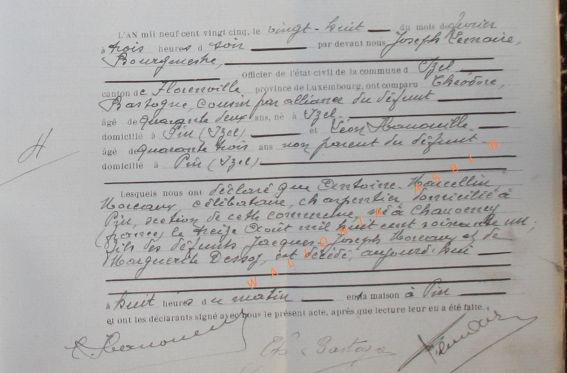 L'AN mil neuf cent vingt cinq, le vingt-huit du mois de février
à trois heures d soir par devant nous Joseph Lemaire,
Bourgmestre,
officier de l'état-civil de la commune d Izel
canton de Florenville, province de Luxembourg, ont comparu Théodore,
Bastogne, cousin par alliance du défunt
âgé de quarante deux ans, né à Izel
domicilié à Pin (Izel) et Léon Hanouille
âgé de quarante trois ans non parent du défunt
domicilié à Pin (Izel)
H
Lesquels nous ont déclaré que Antoine-Marcellin
Moreaux, célibataire, charpentier, domicilié à
Pin, section de cette commune, né à Chauvency
(France) le treize août mil huit cent soixante un,
fils des défunts Jacques-Joseph Moreaux et de
Marguerite, est décédé, aujourd'hui
à huit heures du matin en sa maison à Pin
et ont les déclarants signé avec nous le présent acte, après que lecture leur en a été faite.